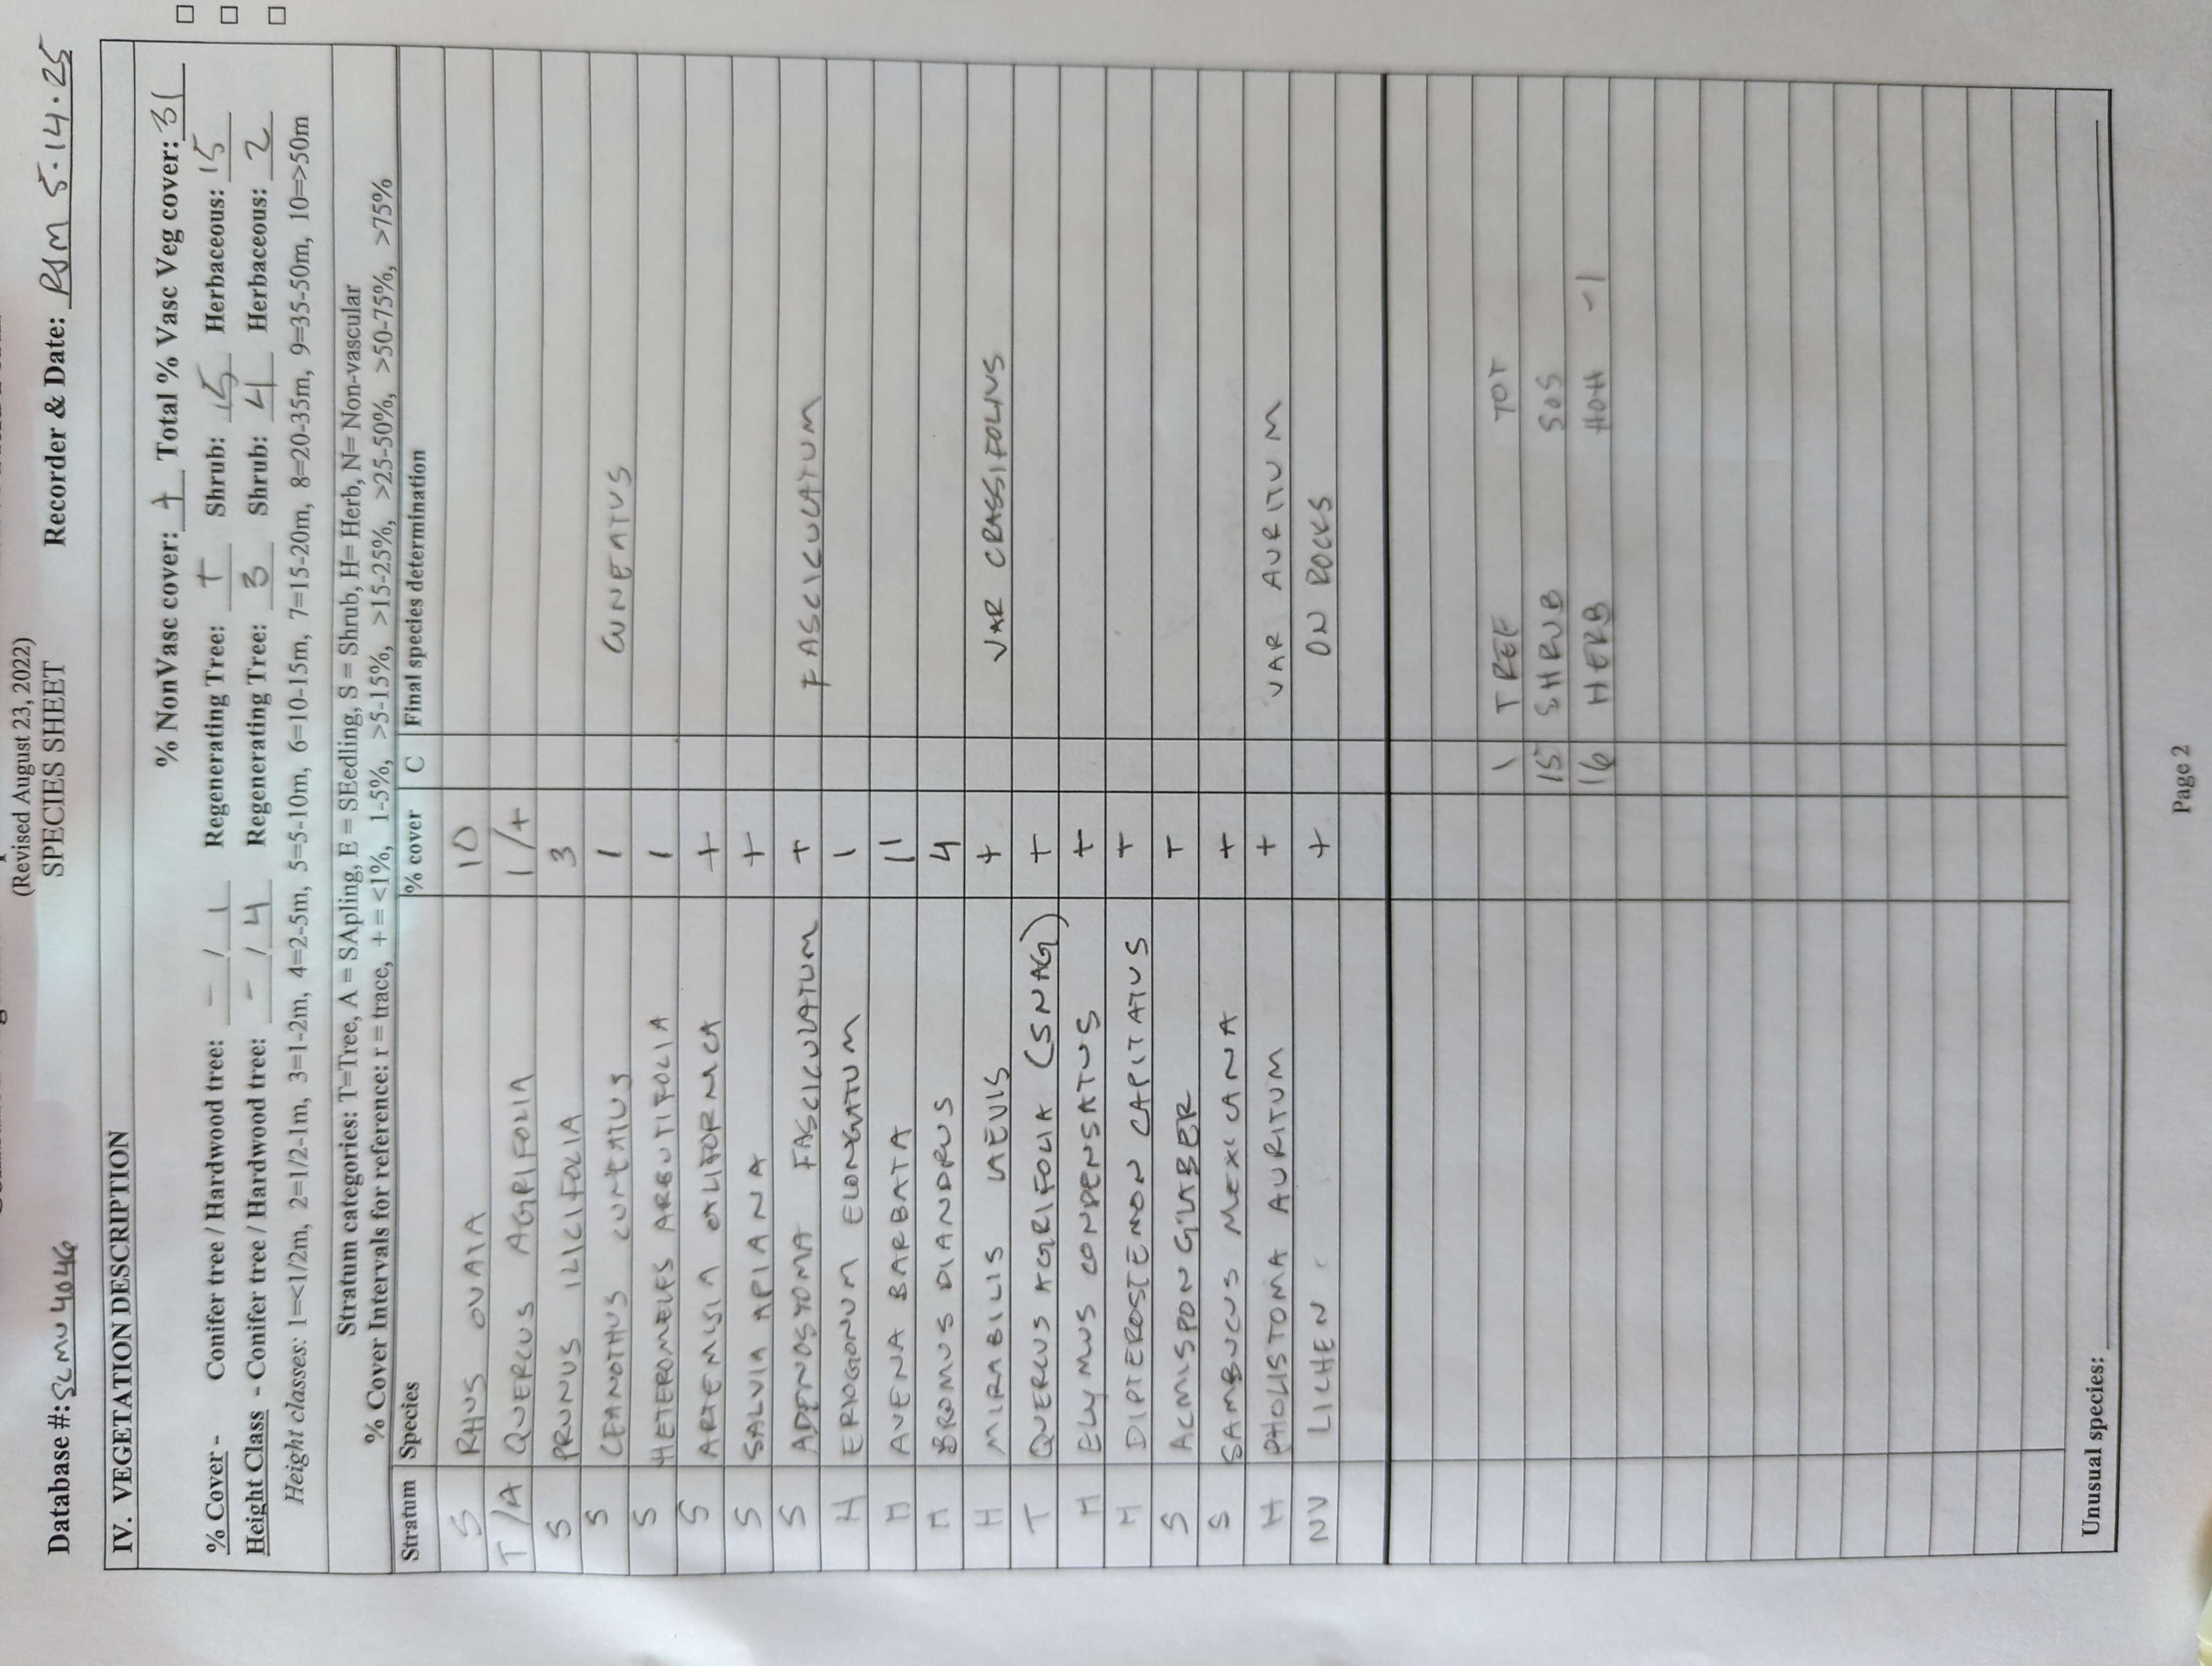 (Revised August 23, 2022)
SPECIES SHEET
Database #: SCMU4046 Recorder & Date: RJM 5.14.25
IV. VEGETATION DESCRIPTION
% NonVasc cover: + Total % Vasc Veg cover: 31
% Cover - Conifer tree / Hardwood tree: - / 1 Regenerating Tree: + Shrub: 15 Herbaceous: 15
Height Class - Conifer tree / Hardwood tree: - / 4 Regenerating Tree: 3 Shrub: 4 Herbaceous: 2
Height classes: 1=<1/2m, 2=1/2-1m, 3=1-2m, 4=2-5m, 5=5-10m, 6=10-15m, 7=15-20m, 8=20-35m, 9=35-50m, 10=>50m
Stratum categories: T=Tree, A = SApling, E = SEedling, S = Shrub, H= Herb, N= Non-vascular
% Cover Intervals for reference: r = trace, + = <1%, 1-5%, >5-15%, >15-25%, >25-50%, >50-75%, >75%
Stratum Species % cover C Final species determination
S RHUS OVATA 10
T/A QUERCUS AGRIFOLIA 1/+
S PRUNUS ILICIFOLIA 3
S CEANOTHUS CUNEATUS 1 CUNEATUS
S HETEROMELES ARBUTIFOLIA 1
S ARTEMISIA CALIFORNICA +
S SALVIA APIANA +
S ADENOSTOMA FASCICULATUM + FASCICULATUM
H ERIOGONUM ELONGATUM 1
H AVENA BARBATA 11
H BROMUS DIANDRUS 4
H MIRABILIS LAEVIS + VAR CRASSIFOLIUS
T QUERCUS AGRIFOLIA (SNAG) +
H ELYMUS CONDENSATUS +
H DIPTEROSTEMON CAPITATUS +
S ACMISPON GLABER +
S SAMBUCUS MEXICANA +
H PHOLISTOMA AURITUM + VAR AURITUM
NV LICHEN + ON ROCKS
1 TREE TOT
15 SHRUB SOS
16 HERB HOH -1
Unusual species:
Page 2